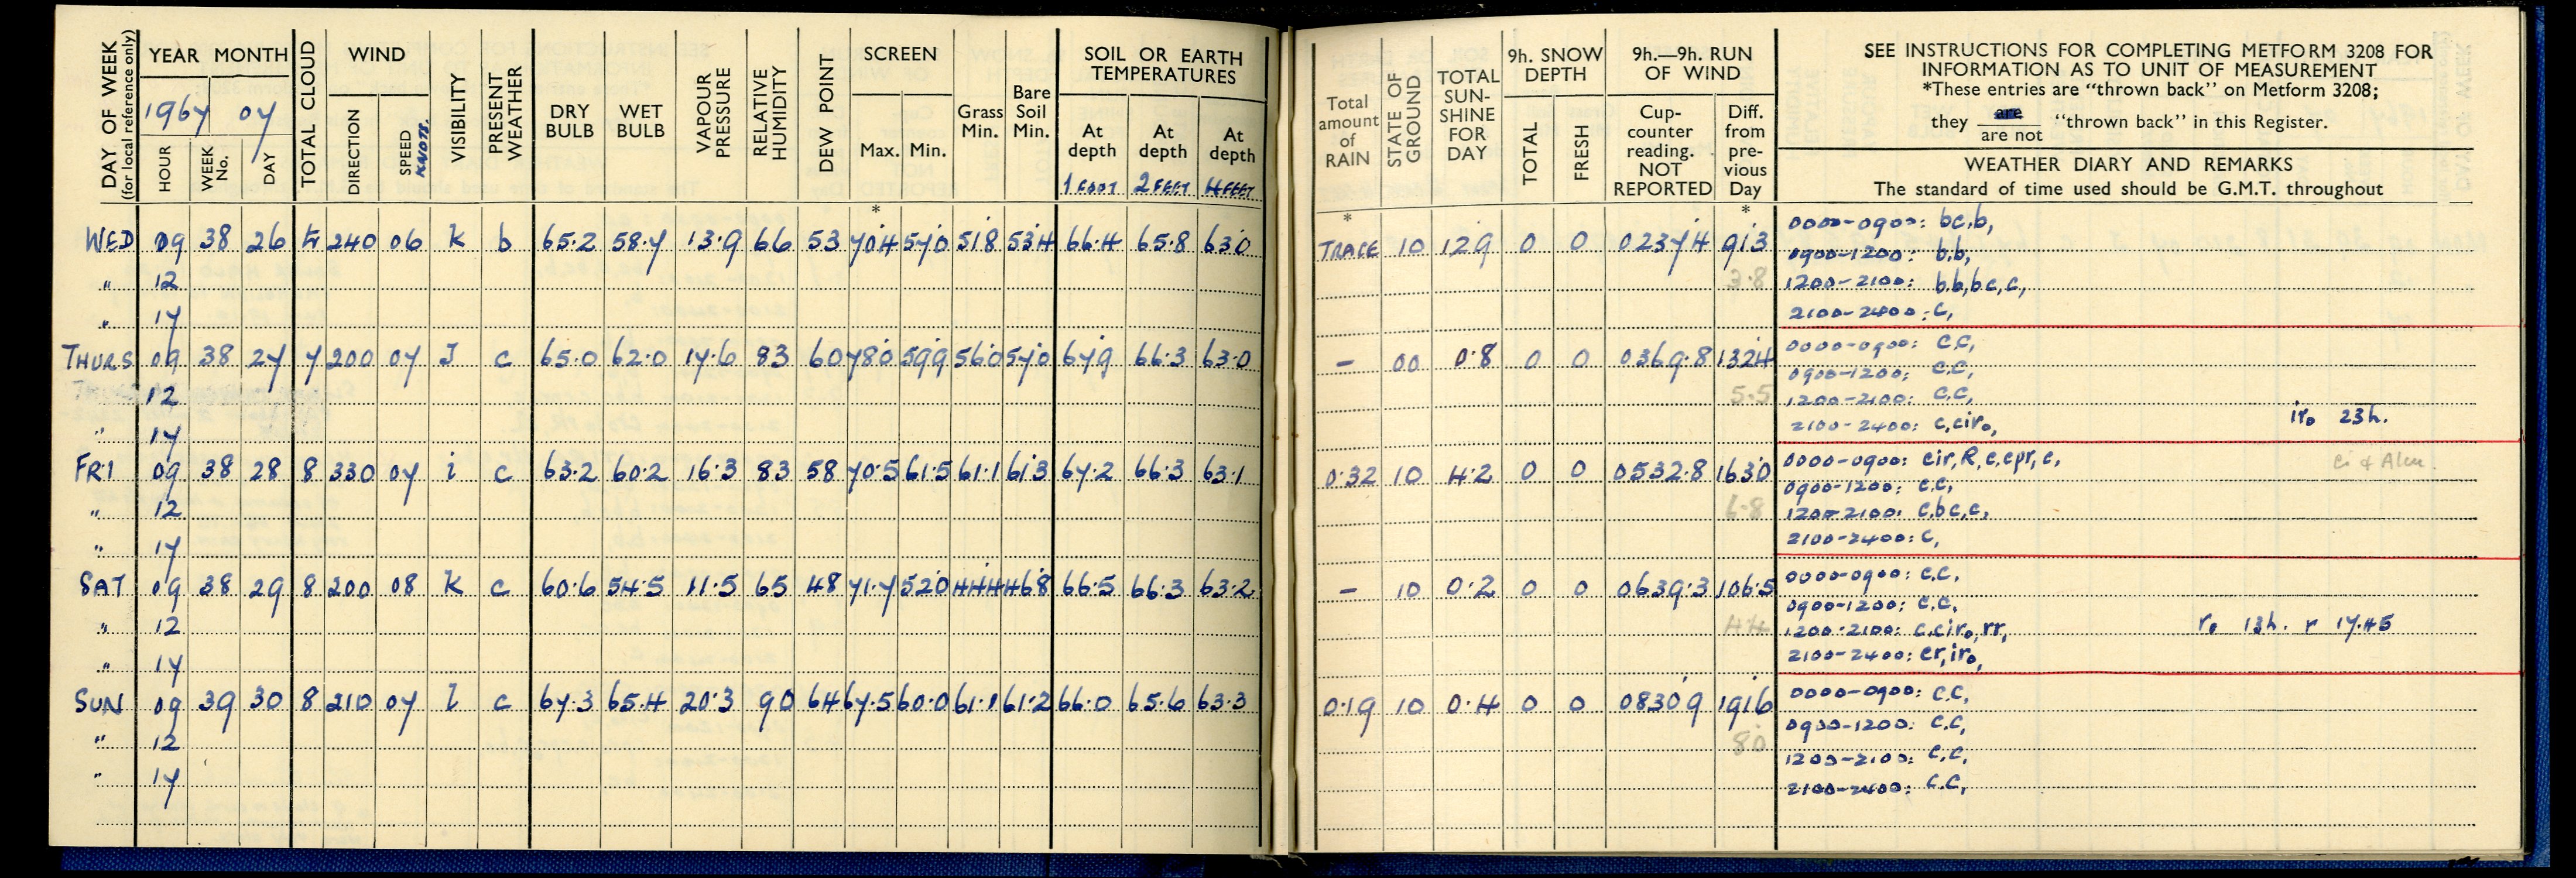 DAY OF WEEK (for local reference only)
YEAR MONTH
1967 07
HOUR
WEEK No.
DAY
TOTAL CLOUD
WIND
DIRECTION
SPEED KNOTS.
VISIBILITY
PRESENT WEATHER
DRY BULB
WET BULB
VAPOUR PRESSURE
RELATIVE HUMIDITY
DEW POINT
SCREEN
Max. Min.
Grass Min.
Bare Soil Min.
SOIL OR EARTH TEMPERATURES
At depth 1 FOOT
At depth 2 FEET
At depth 4 FEET
Total amount of RAIN
STATE OF GROUND
TOTAL SUN-SHINE FOR DAY
9h. SNOW DEPTH
TOTAL
FRESH
9h.—9h. RUN OF WIND
Cup-counter reading. NOT REPORTED
Diff. from pre-vious Day
SEE INSTRUCTIONS FOR COMPLETING METFORM 3208 FOR
INFORMATION AS TO UNIT OF MEASUREMENT
*These entries are "thrown back" on Metform 3208;
they are / are not "thrown back" in this Register.
WEATHER DIARY AND REMARKS
The standard of time used should be G.M.T. throughout
* * *
WED 09 38 26 240 06 K b 65.2 58.7 13.9 66 53 70.4 57.0 51.8 53.4 66.4 65.8 63.0 TRACE 10 12.9 0 0 0237.4 91.3 0000-0900: bc,b,
0900-1200: b,b,
" 12 3.8 1200-2100: b,b,bc,c,
" 17 2100-2400: C,
THURS 09 38 27 7 200 07 J c 65.0 62.0 17.6 83 60 78.0 59.9 56.0 57.0 67.9 66.3 63.0 - 00 0.8 0 0 0369.8 132.4 0000-0900: C.C,
0900-1200: C.C,
" 12 5.5 1200-2100: C.C,
" 17 2100-2400: C,ciro, iro 23h.
FRI 09 38 28 8 330 07 i c 63.2 60.2 16.3 83 58 70.5 61.5 61.1 61.3 67.2 66.3 63.1 0.32 10 4.2 0 0 0532.8 163.0 0000-0900: cir,R,c,cpr,c,
0900-1200: C.C,
" 12 6.8 1200-2100: C,bc,c,
" 17 2100-2400: C,
SAT 09 38 29 8 200 08 K c 60.6 54.5 11.5 65 48 71.7 52.0 44.4 46.8 66.5 66.3 63.2 - 10 0.2 0 0 0639.3 106.5 0000-0900: C.C,
0900-1200: C.C,
" 12 4.4 1200-2100: C,ciro,rr, ro 13h. r 17.45
" 17 2100-2400: cr,iro,
SUN 09 39 30 8 210 07 I c 67.3 65.4 20.3 90 64 67.5 60.0 61.1 61.2 66.0 65.6 63.3 0.19 10 0.4 0 0 0830.9 191.6 0000-0900: C.C,
0900-1200: C.C,
" 12 8.0
1200-2100: C.C,
" 17 2100-2400: C.C,